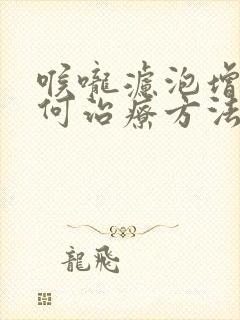 喉嚨濾泡增
何治療方法
龍飛